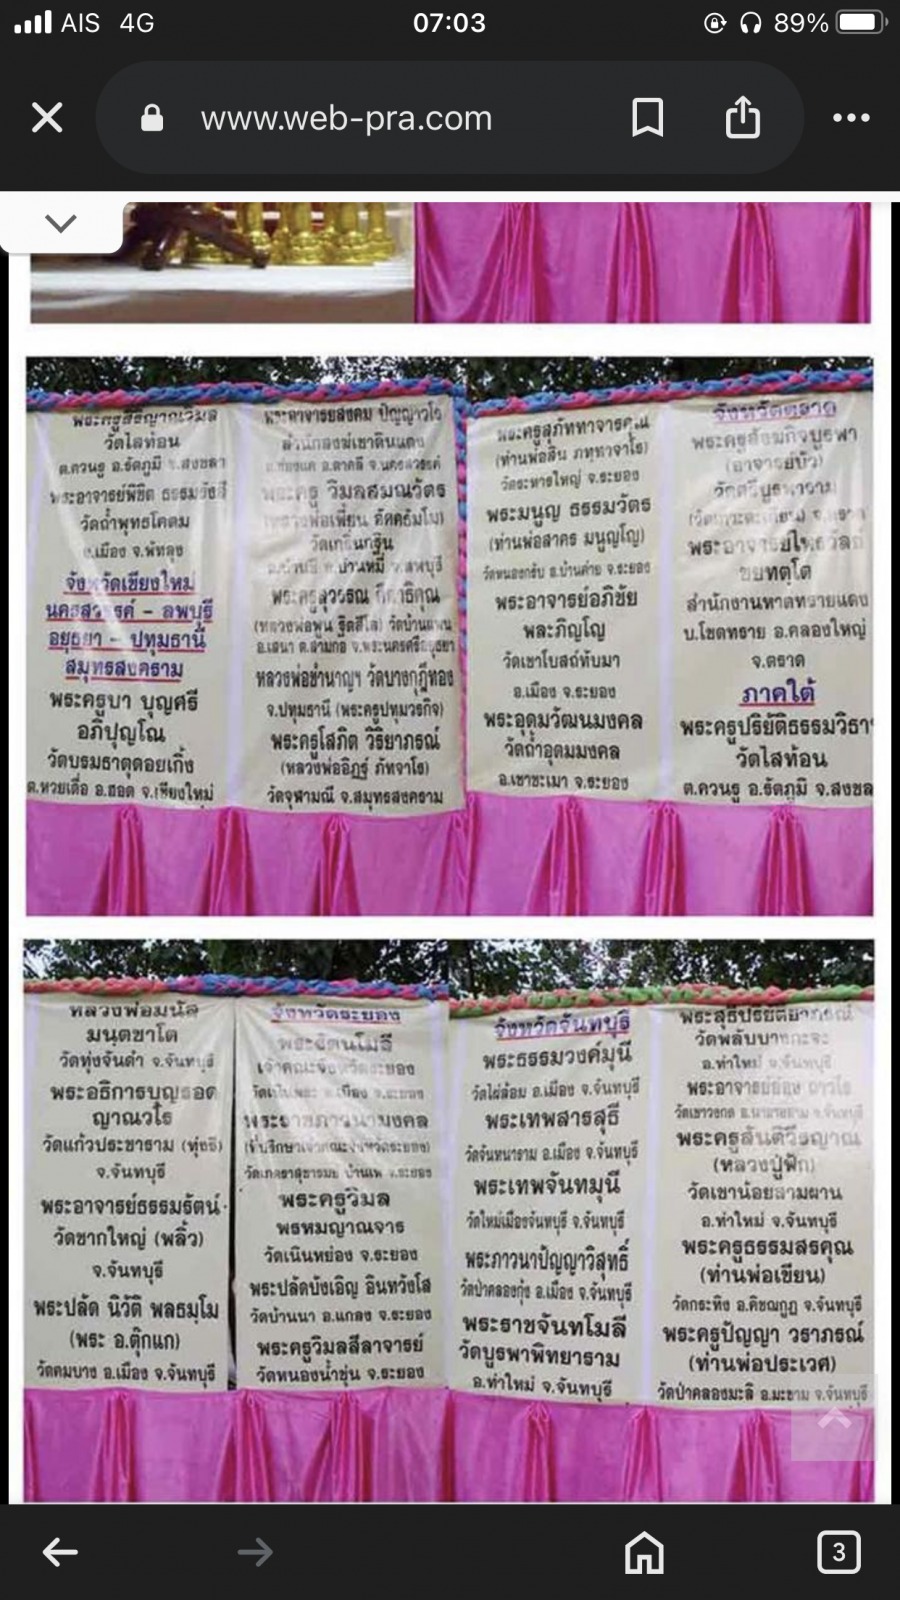 AIS 4G
07:03
89%
www.web-pra.com
วัดไสท้อน
ต.ควนรู อ.รัตภูมิ จ.สงขลา
พระอาจารย์พิชิต
วัดถ้ำพุทธโคดม
อ.เมือง จ.พัทลุง
จังหวัดเชียงใหม่
นครสวรรค์ - ลพบุรี
อยุธยา - ปทุมธานี
สมุทรสงคราม
พระครูบา บุญศรี
อภิปุญโณ
วัดบรมธาตุดอยเกิ้ง
ต.หวยเดื่อ อ.ฮอด จ.เชียงใหม่
ปัญญาวโร
สำนักสงฆ์เขาดินแดง
อ.ตาคลี จ.นครสวรรค์
พระครู วิมลสมณวัตร
(หลวงพ่อเพี้ยน อัคคธัมโม)
วัดเกริ่นกฐิน
จ.ลพบุรี
พระครูสุวรรณ
(หลวงพ่อพูน ฐิตสีโล) วัดบ้านแพน
อ.เสนา
หลวงพ่อชำนาญฯ วัดบางกุฎีทอง
จ.ปทุมธานี (พระครูปทุมวรกิจ)
พระครูโสภิต วิริยาภรณ์
(หลวงพ่ออิฏฐ์ ภัทจาโร)
วัดจุฬามณี จ.สมุทรสงคราม
พระครูสุภัททาจารคุณ
(ท่านพ่อสิน ภทฺทาจาโร)
วัดระหารใหญ่ จ.ระยอง
พระมนูญ ธรรมวัตร
(ท่านพ่อสาคร มนูญโญ)
วัดหนองกรับ อ.บ้านค่าย จ.ระยอง
พระอาจารย์อภิชัย
พละภิญโญ
วัดเขาโบสถ์ทับมา
อ.เมือง จ.ระยอง
พระอุดมวัฒนมงคล
วัดถ้ำอุดมมงคล
อ.เขาชะเมา จ.ระยอง
จังหวัดตราด
พระครูสังฆกิจบูรพา
(อาจารย์บัว)
วัดศรีบูรพาราม
พระอาจารย์
ชยทตฺโต
สำนักงานหาดทรายแดง
บ.โขดทราย อ.คลองใหญ่
จ.ตราด
ภาคใต้
พระครูปริยัติธรรมวิธา
วัดไสท้อน
ต.ควนรู อ.รัตภูมิ จ.สงขล
หลวงพ่อมนัส
มนฺตชาโต
วัดทุ่งจันดำ จ.จันทบุรี
พระอธิการบุญรอด
ญาณวโร
วัดแก้วประชาราม
จ.จันทบุรี
พระอาจารย์ธรรมรัตน์
วัดชากใหญ่ (พลิ้ว)
จ.จันทบุรี
พระปลัด นิวัติ พลธมฺโม
(พระ อ.ตุ๊กแก)
วัดคมบาง อ.เมือง จ.จันทบุรี
จังหวัดระยอง
เจ้าคณะจังหวัดระยอง
พระราชภาวนามงคล
(ที่ปรึกษาเจ้าคณะจังหวัดระยอง)
พระครูวิมล
พรหมญาณจาร
วัดเนินหย่อง จ.ระยอง
พระปลัดบังเอิญ อินทวังโส
วัดบ้านนา อ.แกลง จ.ระยอง
พระครูวิมลสีลาจารย์
วัดหนองน้ำขุ่น จ.ระยอง
จังหวัดจันทบุรี
พระธรรมวงศ์มุนี
วัดไผ่ล้อม อ.เมือง จ.จันทบุรี
พระเทพสารสุธี
วัดจันทนาราม อ.เมือง จ.จันทบุรี
พระเทพจันทมุนี
วัดใหม่เมืองจันทบุรี จ.จันทบุรี
พระภาวนาปัญญาวิสุทธิ์
วัดป่าคลองกุ้ง อ.เมือง จ.จันทบุรี
พระราชจันทโมลี
วัดบูรพาพิทยาราม
อ.ท่าใหม่ จ.จันทบุรี
วัดพลับบางกะจะ
อ.ท่าใหม่ จ.จันทบุรี
พระอาจารย์
พระครูสันติวีรญาณ
(หลวงปู่ฟัก)
วัดเขาน้อยสามผาน
อ.ท่าใหม่ จ.จันทบุรี
พระครูธรรมสรคุณ
(ท่านพ่อเขียน)
วัดกระทิง อ.คิชฌกูฏ จ.จันทบุรี
พระครูปัญญา วราภรณ์
(ท่านพ่อประเวศ)
วัดป่าคลองมะลิ อ.มะขาม จ.จันทบุรี
3